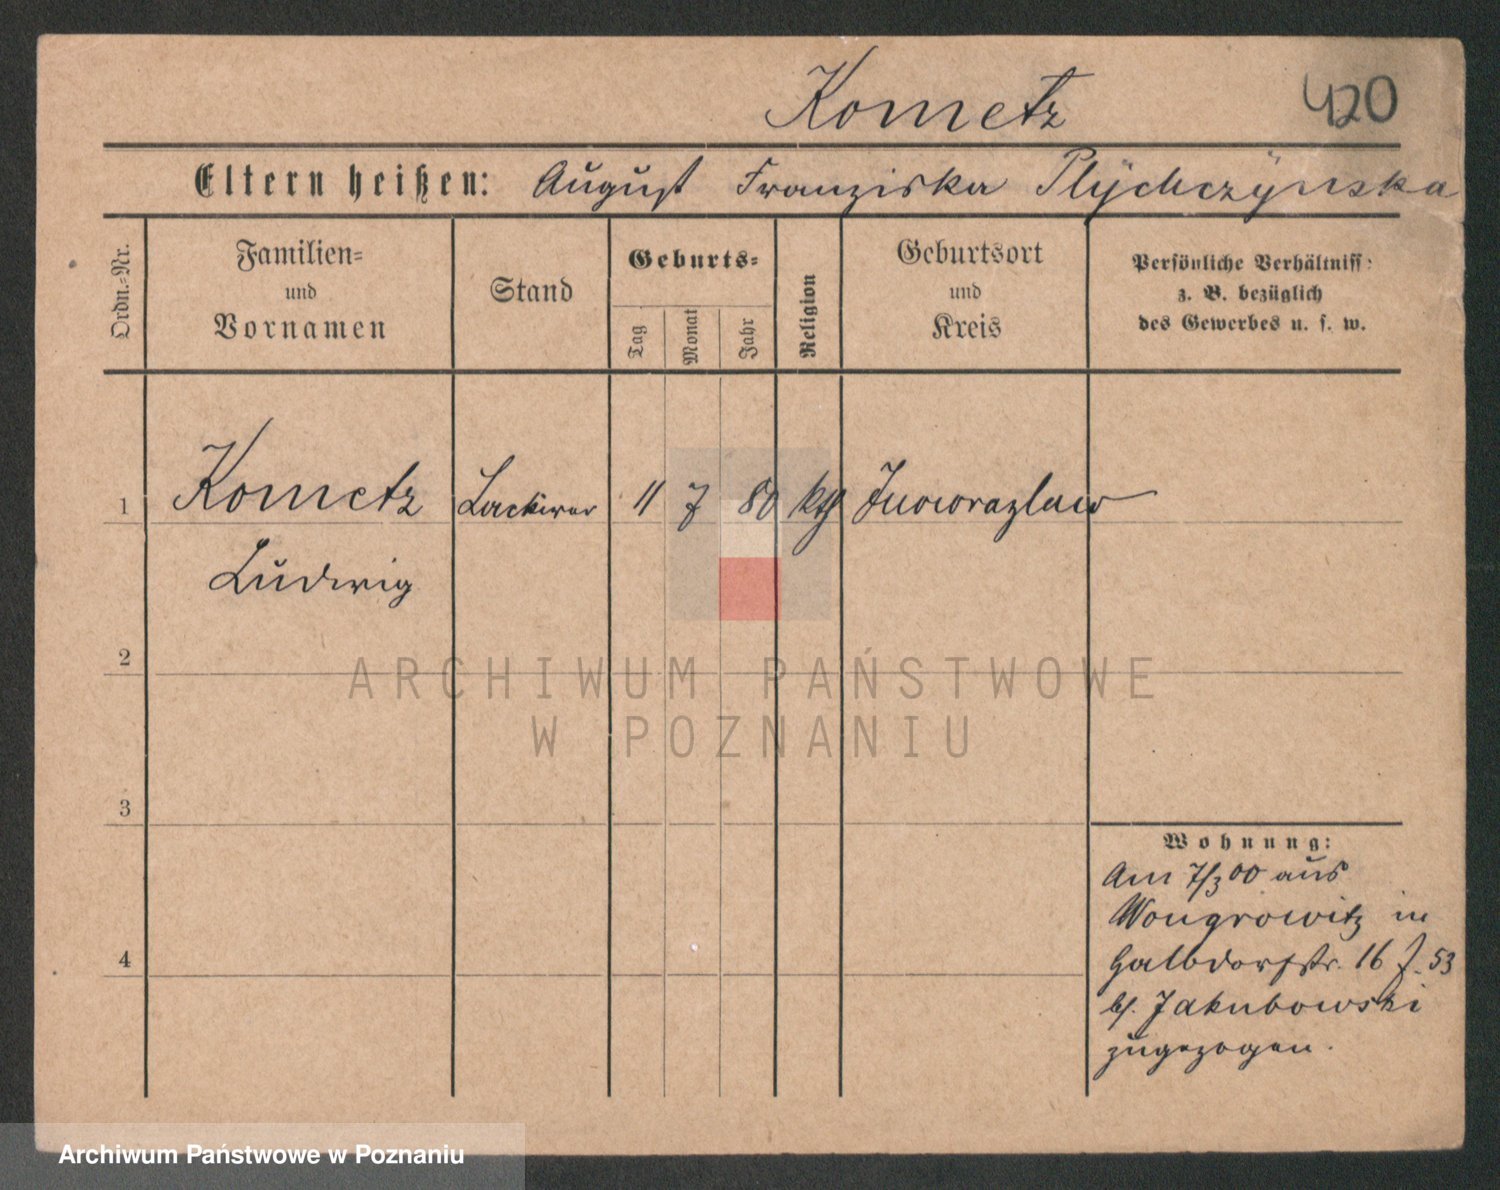 Kometz 420
Eltern heißen: August Franziska Plÿchczÿnska
Ordn.-Nr.
Familien=
und
Vornamen
Stand
Geburts=
Tag
Monat
Jahr
Religion
Geburtsort
und
Kreis
Persönliche Verhältniss
z. B. bezüglich
des Gewerbes u. s. w.
1 Kometz Lackirer 11 7 80 kth Inowrazlaw
Ludwig
2
3
4
Wohnung:
Am 7/3 00 aus
Wongrowitz in
Halbdorfstr. 16 J. 53
bf. Jakubowski
zugezogen.
ARCHIWUM PAŃSTWOWE
W POZNANIU
Archiwum Państwowe w Poznaniu